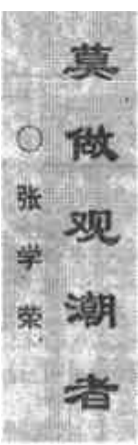 莫做观潮者
○张学荣